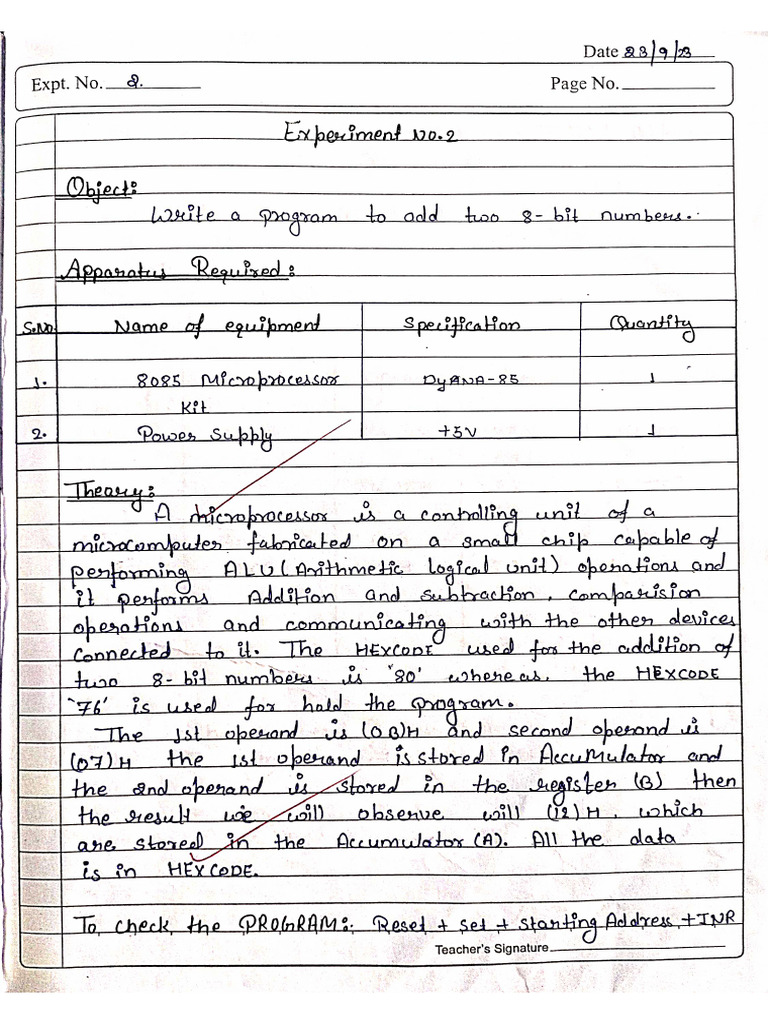 Date 23/9/23
Expt. No. 2. Page No.
Experiment No.2
Object:
Write a program to add two 8-bit numbers.
Apparatus Required:
S.No Name of equipment Specification Quantity
1. 8085 Microprocessor DyANA-85 1
Kit
2. Power Supply +5V 1
Theory:
A microprocessor is a controlling unit of a
microcomputer fabricated on a small chip capable of
performing ALU (Arithmetic logical unit) operations and
it performs Addition and subtraction, comparision
operations and communicating with the other devices
connected to it. The HEXCODE used for the addition of
two 8-bit numbers is '80' where as, the HEXCODE
'76' is used for hold the program.
The 1st operand is (0B)H and second operand is
(07)H the 1st operand is stored in Accumulator and
the 2nd operand is stored in the register (B) then
the result we will observe will (12)H, which
are stored in the Accumulator (A). All the data
is in HEXCODE.
To check the PROGRAM:. Reset + set + starting Address, + INR
Teacher's Signature